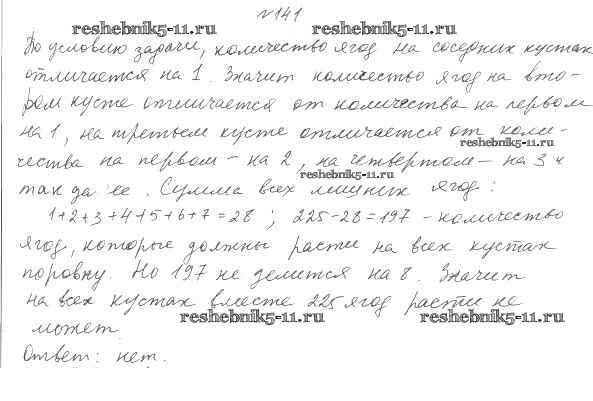 №141
reshebnik5-11.ru reshebnik5-11.ru
По условию задачи, количество ягод на соседних кустах
отличается на 1. Значит количество ягод на вто-
ром кусте отличается от количества на первом
на 1, на третьем кусте отличается от коли-
reshebnik5-11.ru
чества на первом – на 2, на четвертом – на 3 и
reshebnik5-11.ru
так далее. Сумма всех лишних ягод:
1+2+3+4+5+6+7=28 ; 225-28=197 - количество
ягод, которые должны расти на всех кустах
поровну. Но 197 не делится на 8. Значит
на всех кустах вместе 225 ягод расти не
reshebnik5-11.ru reshebnik5-11.ru
может.
Ответ: нет.